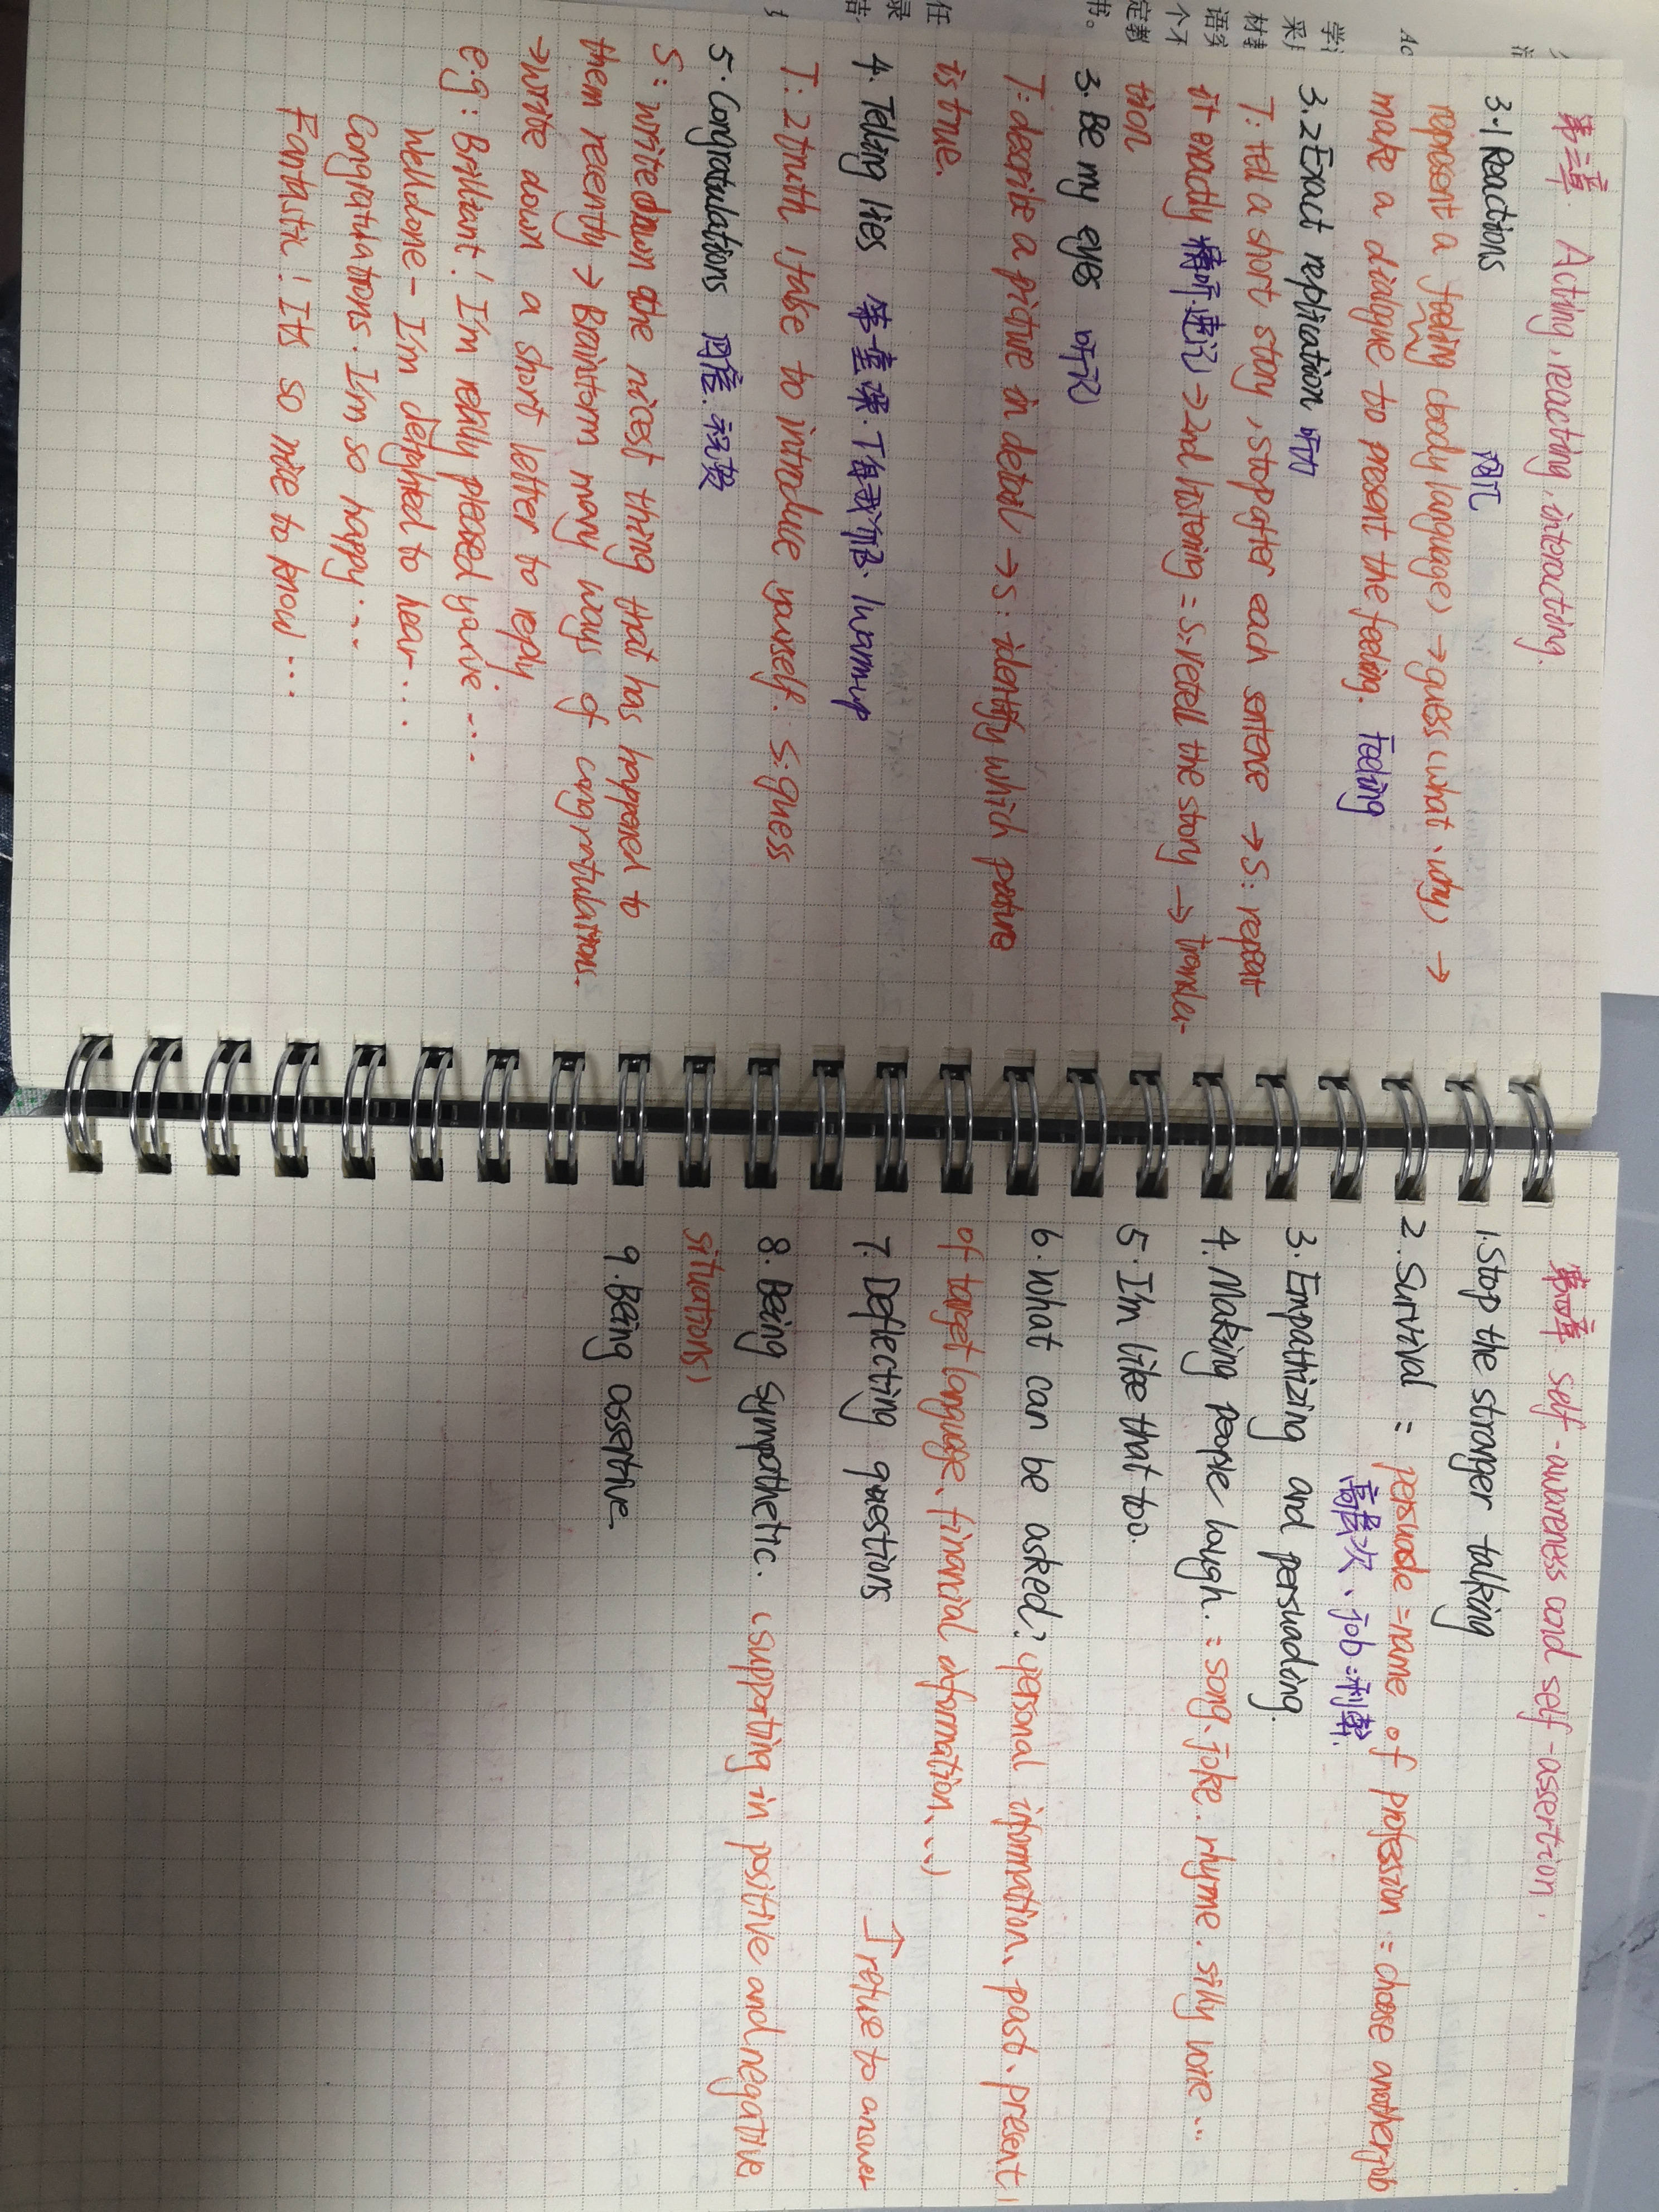 第三章 Acting, reacting, interacting.
3.1 Reactions
represent a feeling (body language) → guess (what、why) →
make a dialogue to present the feeling. Feeling
3.2 Exact replication 听力
T: tell a short story, stop after each sentense → S: repeat
it exactly 精听速记 → 2nd listening = S: retell the story → transla-
tion
3. Be my eyes 听记
T: describe a picture in detail → S: identify which picture
is true.
4. Telling lies 第一堂课. T自我介绍. Warm-up
T: 2 truth 1 false to introduce yourself. S: guess
5. Congratulations 回信. 祝贺
S: write down the nicest thing that has happened to
them recently → Brainstorm many ways of congratulations.
→ write down a short letter to reply.
e.g: Brilliant! I'm really pleased you've ...
Well done - I'm delighted to hear ...
Congratulations. I'm so happy ...
Fantastic! It's so nice to know ...
第四章 self-awareness and self-assertion.
1. Stop the stranger talking
2. Survival = persuade = name of profession = choose another job
高层次、job:利弊.
3. Empathizing and persuading.
4. Making people laugh. = song. joke. rhyme. silly voice ...
5. I'm like that too.
6. What can be asked? (personal information、past、present
of target language、financial information、...)
7. Deflecting questions ↑ refuse to answer
8. Being sympathetic. (supporting in positive and negative
situations)
9. Being assertive.